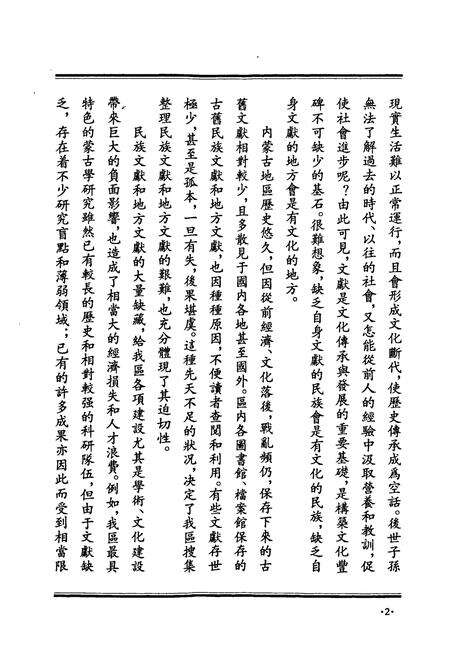 現實生活難以正常運行，而且會形成文化斷代，使歷史傳承成爲空話。後世子孫
無法了解過去的時代、以往的社會，又怎能從前人的經驗中汲取營養和教訓，促
使社會進步呢？由此可見，文獻是文化傳承與發展的重要基礎，是構築文化豐
碑不可缺少的基石。很難想象，缺乏自身文獻的民族會是有文化的民族，缺乏自
身文獻的地方會是有文化的地方。
内蒙古地區歷史悠久，但因從前經濟、文化落後，戰亂頻仍，保存下來的古
舊文獻相對較少，且多散見于國内各地甚至國外。區内各圖書館、檔案館保存的
古舊民族文獻和地方文獻，也因種種原因，不便讀者查閱和利用。有些文獻存世
極少，甚至是孤本，一旦有失，後果堪虞。這種先天不足的狀況，决定了我區搜集
整理民族文獻和地方文獻的艱難，也充分體現了其迫切性。
民族文獻和地方文獻的大量缺藏，給我區各項建設尤其是學術、文化建設
帶來巨大的負面影響，也造成了相當大的經濟損失和人才浪費。例如，我區最具
特色的蒙古學研究雖然已有較長的歷史和相對較强的科研隊伍，但由于文獻缺
乏，存在着不少研究盲點和薄弱領域；已有的許多成果亦因此而受到相當限
·2·